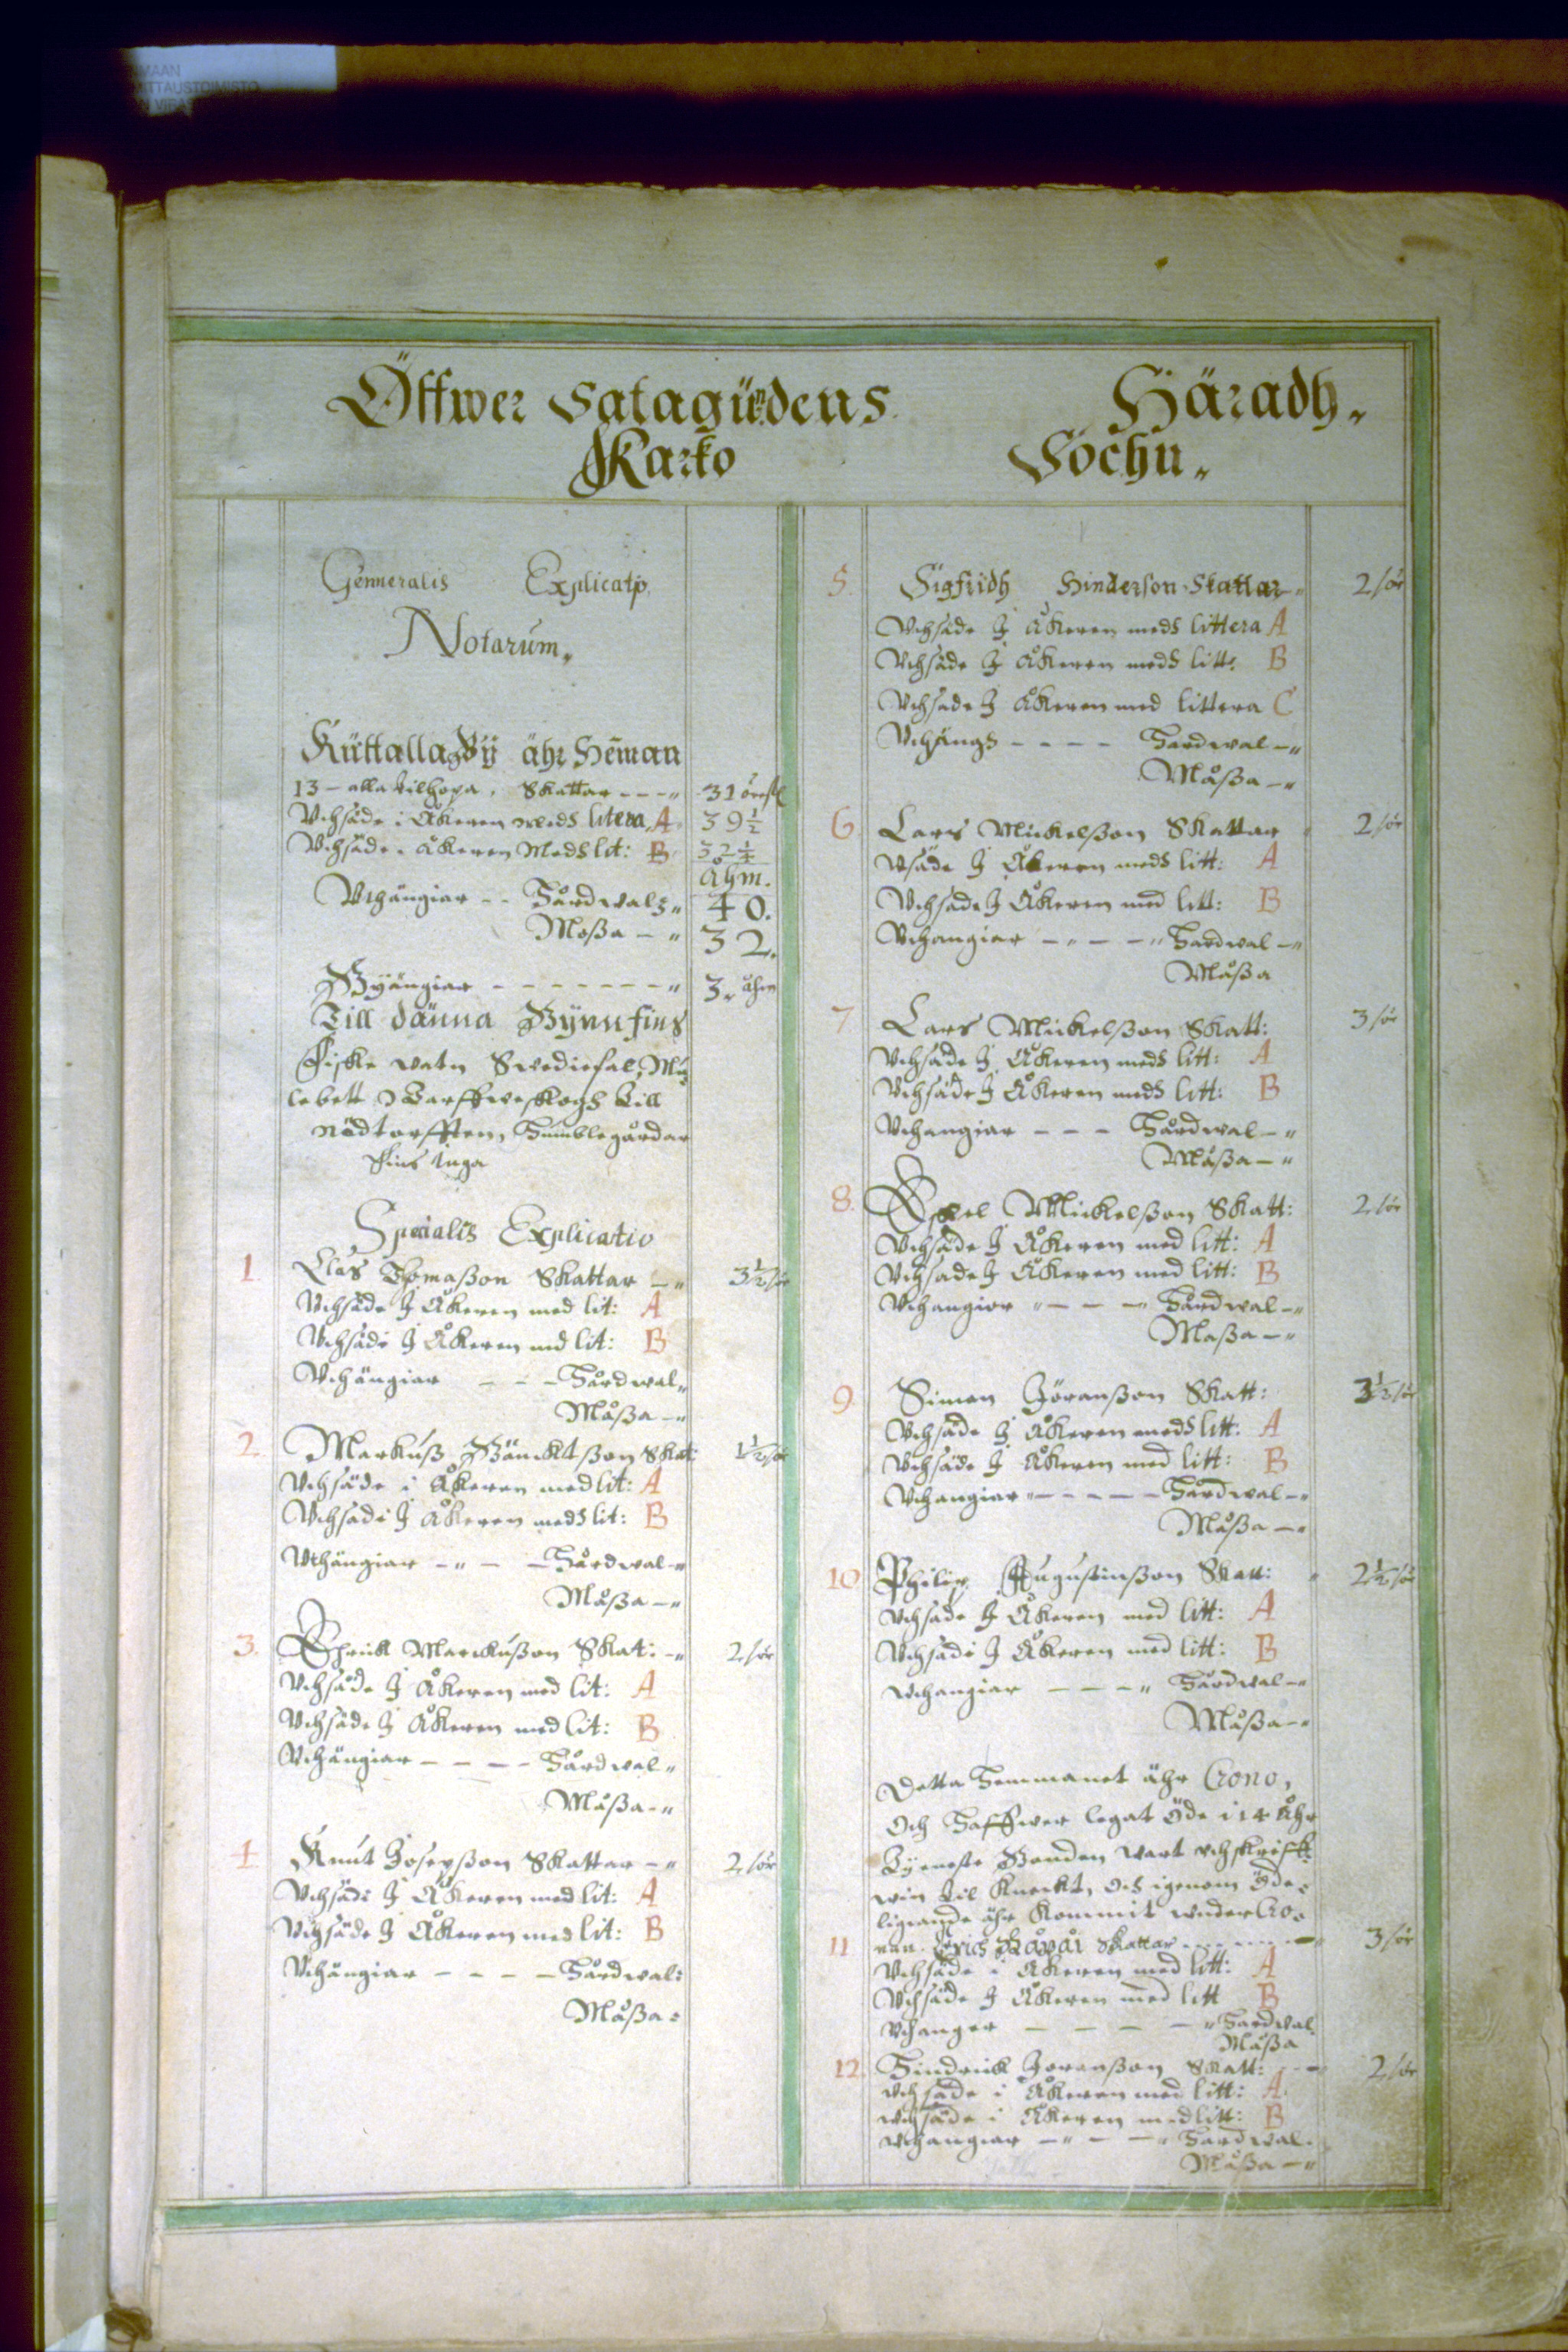 MAAN
MITTAUSTOIMISTO
Öffwer Satagündens Häradh„
Karko Sochn„
Genneralis Explicatio
Notarum„
Kuttalla By ähr Heman
13 – alla tilhopa, Skattar – – – „ 31 öresl
Vthsäde i åkeren meds litera A 39 1/2
Vthsäde i åkeren Meds lit: B 32 1/4
åhm.
Vthängiar – – Hårdwals„ 40.
Moßa – „ 32.
Byängiar – – – – – – – „ 3„ åhm
Till dänna By nu fins
Fiske watn Swediefal, Mu
lebett Tarffweskogh till
Nödtorfften, Humblegårdar
fins Inga
Specialis Explicatio
1 Clas Thomaßon Skattar – „ 3 1/2 /ör
Vthsäde I åkeren med lit: A
Vthsäde I åkeren med lit: B
Vthängiar – – – Hårdwal„
Måßa – „
2. Markuß Bäncktßon Skat: 1 1/2 /ör
Vthsäde i åkeren med lit: A
Vthsäde I åkeren meds lit: B
Vthängiar – „ – – Hårdwal – „
Måßa – „
3. Ehrick Marckußon Skat: – „ 2 /ör
Vthsäde I åkeren med lit: A
Vthsäde I åkeren med lit: B
Vthängiar – – – – Hårdwal„
Måßa – „
4. Knut Josepßon Skattar – „ 2 /ör
Vthsäde I åkeren med lit: A
Vthsäde I åkeren med lit: B
Vthängiar – – – – Hårdwal:
Måßa :
5. Sigfridh Hinderson Skattar – „ 2 /ör
Vthsäde I åkeren meds littera A
Vthsäde I åkeren meds litt: B
Vthsäde I åkeren med littera C
Vthängh – – – – Hardwal – „
Måßa – „
6. Lars Mickelßon Skattar 2 /ör
Vsäde I åkeren meds litt: A
Vthsäde I åkeren med litt: B
Vthangiar – „ – – „ Hardwal – „
Måßa
7. Lars Mickelßon Skatt: 3 /ör
Vthsäde I åkeren meds litt: A
Vthsäde I åkeren meds litt: B
Vthangiar – – – Hårdwal – „
Måßa – „
8. Eskel Mickelßon Skatt: 2 /ör
Vthsäde I åkeren med litt: A
Vthsäde I åkeren med litt: B
Vthangiar „ – – – „ Hårdwal – „
Maßa – „
9. Simon Jöranßon Skatt: 3 1/2 /ör
Vthsäde I åkeren meds litt: A
Vthsäde I åkeren med litt: B
Vthangiar „ – – – – Hårdwal – „
Måßa – „
10 Philip Augustinßon Skatt: „ 2 1/2 /ör
Vthsäde I åkeren med litt: A
Vthsäde I åkeren med litt: B
Vthangiar – – – „ Hårdwal – „
Måßa – „
Detta Hemmanet ähr Crono,
Och Haffwer legat öde i 14 åhr
Ty enste Bonden wart vthskriff:
win til Knecht, och igenom öde:
ligiande ähr Kommit under Cro:
11 nan. Erich Kåpåi Skattar – – – – 3 /ör
Vthsäde i åkeren med litt: A
Vthsäde I åkeren med litt B
Vthanger – – – – „ Hardwal
Måßa
12. Hindrick Joranßon Skatt: – – 2 /ör
Vthsäde i åkeren med litt: A
Vthsäde i åkeren med litt: B
Vthangiar – „ – – „ Hardwal.
Måßa – „